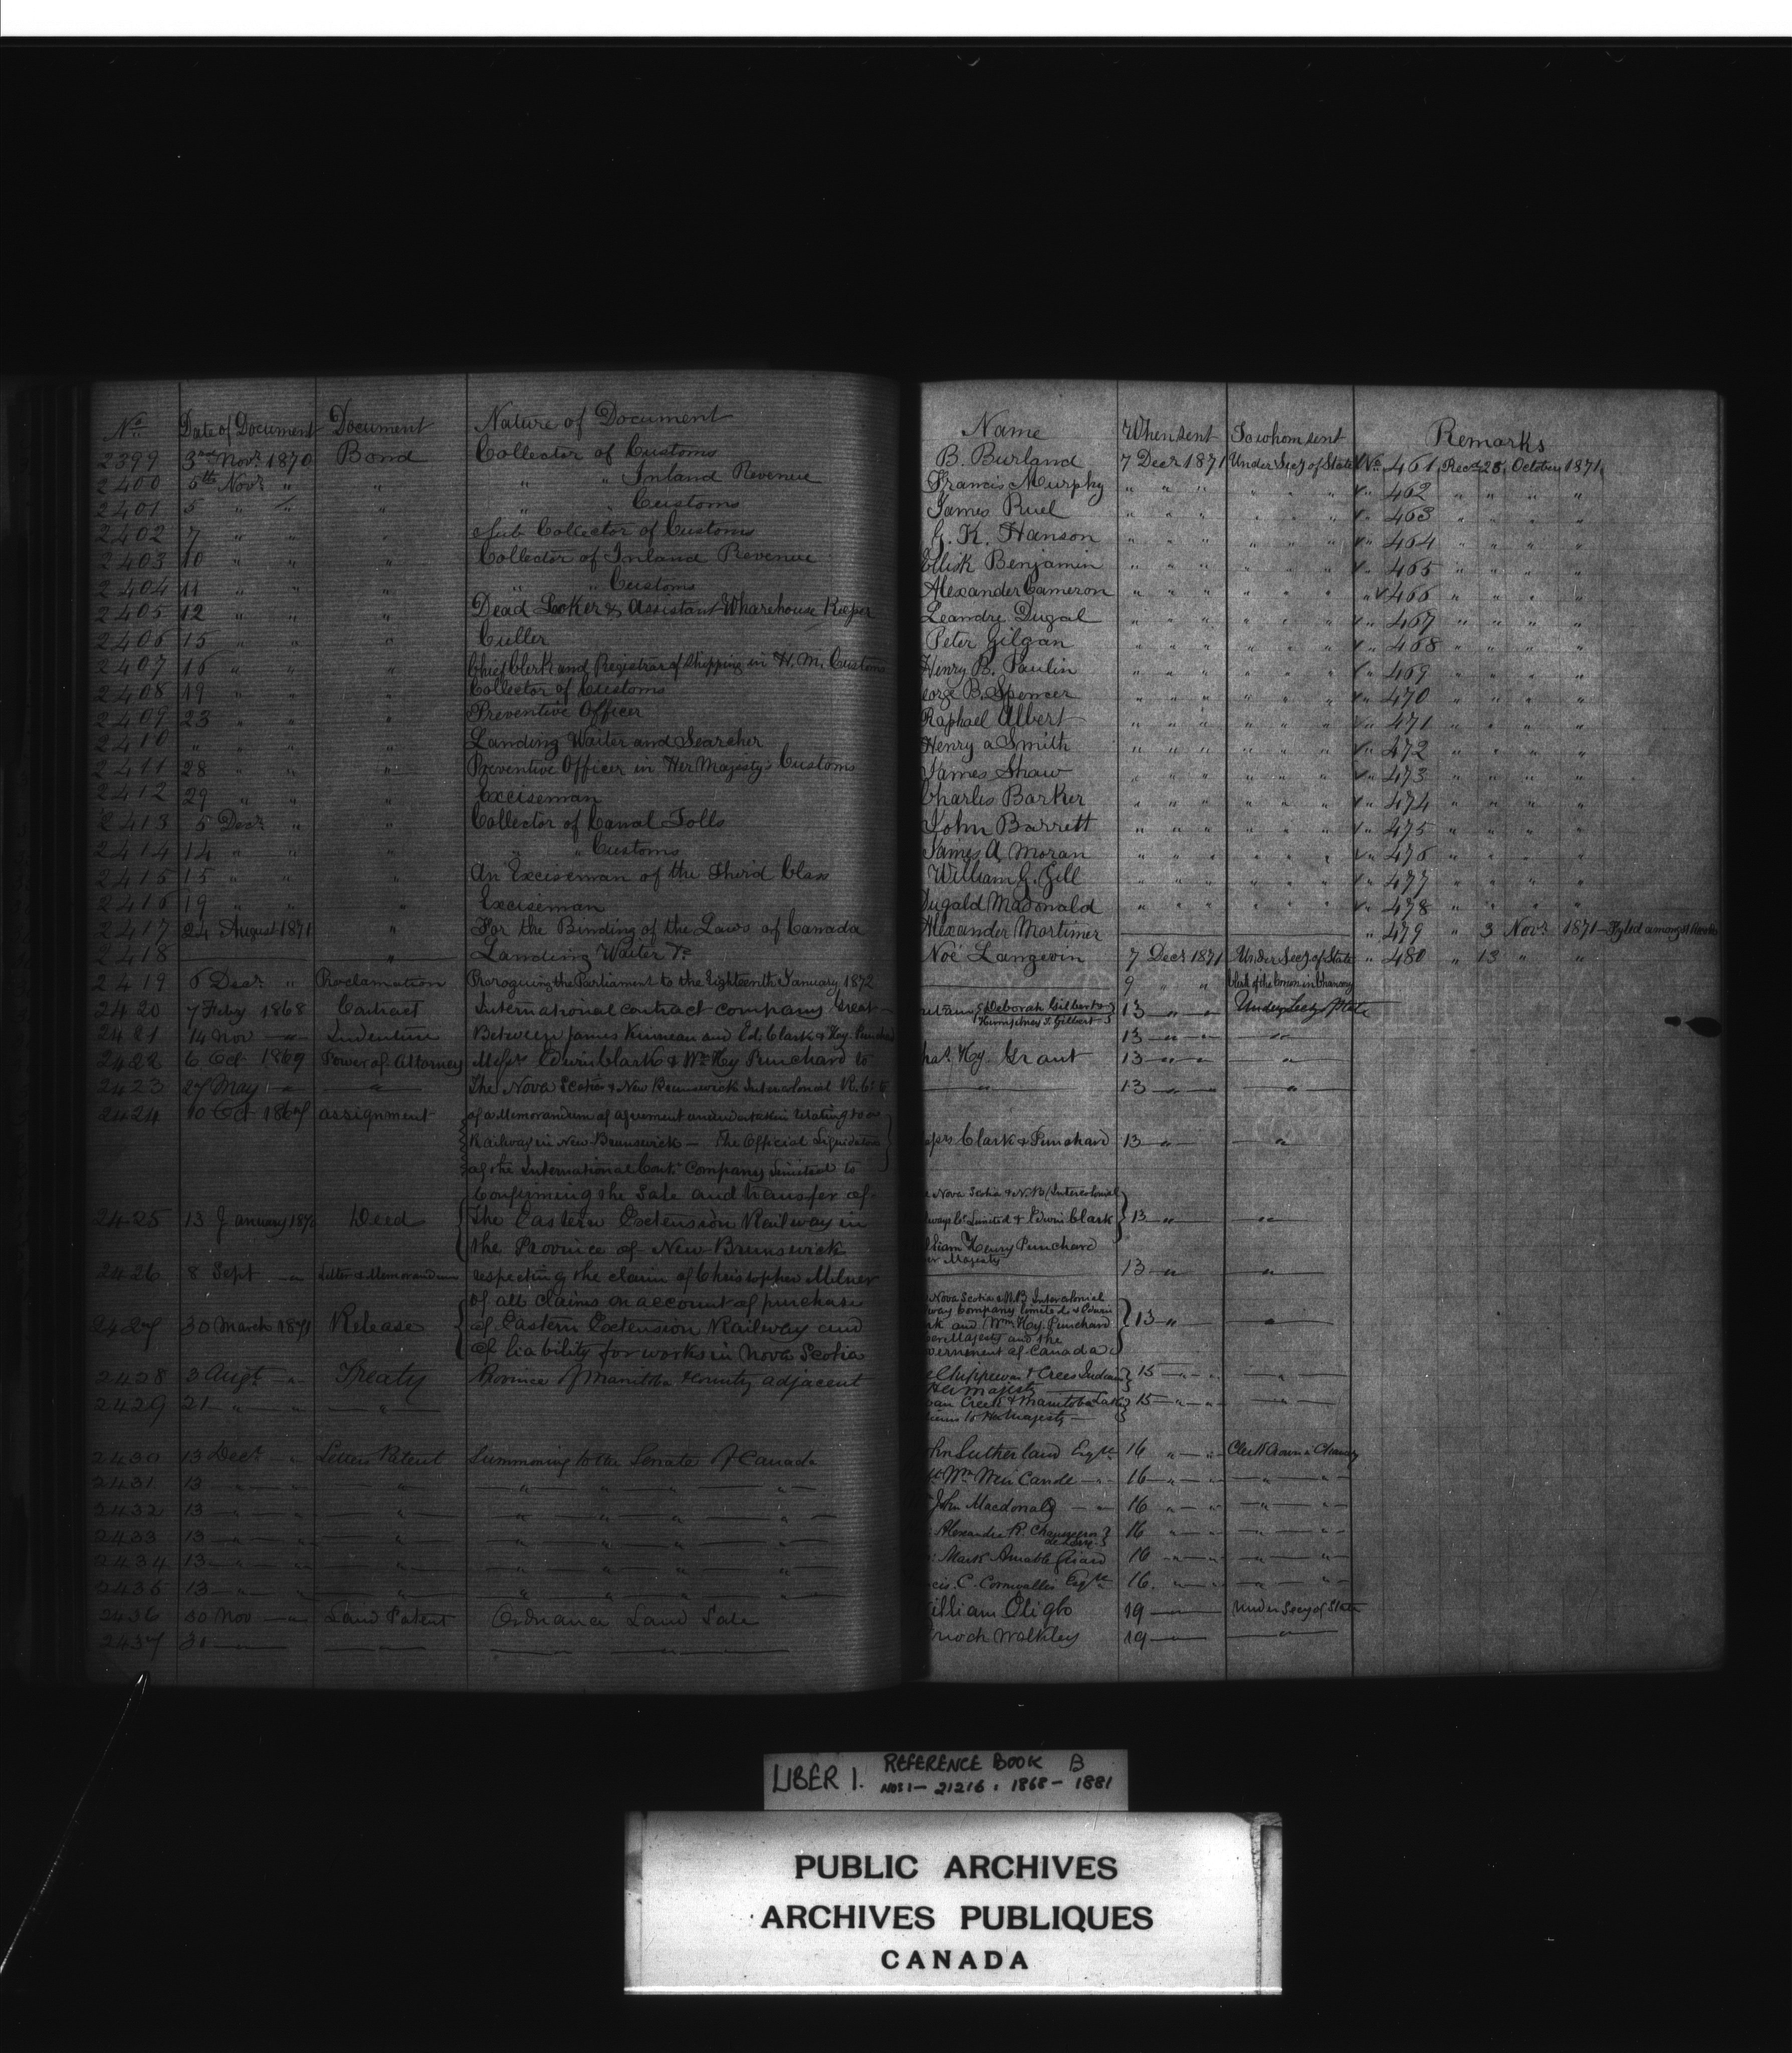 No. Date of Document Document Nature of Document Name When sent To whom sent Remarks
2399 3rd Novr 1870 Bond Collector of Customs B. Burland 7 Decr 1871 Under Secy of State No. 461 Recd 28 October 1871
2400 5th Novr " " " " Inland Revenue Francis Murphy " " " " " " " 462 " " " "
2401 5 " " " " " Customs James Ruel " " " " " " " 463 " " " "
2402 7 " " " Sub Collector of Customs G. K. Hanson " " " " " " " 464 " " " "
2403 10 " " " Collector of Inland Revenue Benjamin " " " " " " " 465 " " " "
2404 11 " " " " " Customs Alexander Cameron " " " " " " " 466 " " " "
2405 12 " " " Dead Locker & Assistant Wharehouse Keeper Leandre Dugal " " " " " " " 467 " " " "
2406 15 " " " Culler Peter Gilgan " " " " " " " 468 " " " "
2407 16 " " " Chief Clerk and Registrar of Shipping in H. M. Customs Henry B. Paulin " " " " " " " 469 " " " "
2408 19 " " " Collector of Customs eorge B. Spencer " " " " " " " 470 " " " "
2409 23 " " " Preventive Officer Raphael Albert " " " " " " " 471 " " " "
2410 " " " " Landing Waiter and Searcher Henry a Smith " " " " " " " 472 " " " "
2411 28 " " " Preventive Officer in Her Majesty's Customs James Shaw " " " " " " " 473 " " " "
2412 29 " " " Exciseman Charles Barker " " " " " " " 474 " " " "
2413 5 Decr " " Collector of Canal Tolls John Barrett " " " " " " " 475 " " " "
2414 14 " " " " " Customs James A. Moran " " " " " " " 476 " " " "
2415 15 " " " An Exciseman of the Third Class William G. Gill " " " " " " " 477 " " " "
2416 19 " " " Exciseman Dugald McDonald " " " " " " " 478 " " " "
2417 24 August 1871 " For the Binding of the Laws of Canada Alexander Mortimer " 479 " 3 Novr 1871 Fyled amongst
2418 " Landing Waiter Noé Langevin 7 Decr 1871 Under Secy of State " 480 " 13 " "
2419 6 Decr " Proclamation Proroguing the Parliament to the Eighteenth January 1872 9 " " Clerk of the Crown in Chancery
2420 7 Feby 1868 Contract International contract company Great ritain & Deborah Gilbert 13 " " Under Secy State
Humphrey T. Gilbert
2421 14 Nov " Indenture Between James Kinnean and Ed. Clark & Hy. Punchard 13 " " "
2422 6 Oct 1869 Power of Attorney Messrs Edwin Clark & Wm Hy Punchard to has. Hy. Grant 13 " " "
2423 27 May " " The Nova Scotia & New Brunswick Intercolonial " 13 " " "
2424 10 Oct 1867 assignment of a Memorandum of agreement relating to a
Railway in New Brunswick — The Official Liquidators Clark & Punchard 13 " "
of the International Cont. Company Limited to
2425 13 January Deed Confirming the Sale and transfer of Nova Scotia & N.B. Intercolonial
The Eastern Extension Railway in Limited & Edwin Clark 13 " "
the Province of New Brunswick lliam Henry Punchard
er Majesty
2426 8 Sept " Letter & Memorandum respecting the claim of Christopher Milner 13 " "
2427 30 March 1871 Release of all claims on account of purchase Nova Scotia & N.B. Intercolonial
way Company limited & Edwin
of Eastern Extension Railway and rk and Wm Hy. Punchard 13 " "
er Majesty and the
of liability for works in Nova Scotia vernment of Canada
2428 3 Augt " Treaty Province of Manitoba & County adjacent e Chippewa & Crees Indian 15 " " "
Her Majesty
2429 21 " " " an Creek & Manitoba Lake 15 " " "
to Her Majesty
2430 13 Decr " Letters Patent Summoning to the Senate of Canada hn Sutherland Esqre 16 " " Clerk Crown in Chancery
2431 13 " " " " " " " " 16 " " " "
2432 13 " " " " " " " John Macdonald " 16 " " " "
2433 13 " " " " " " " Alexandre R. 16 " " " "
2434 13 " " " " " " " Mark Amable Girard 16 " " " "
2435 13 " " " " " " " cis. C. Cornwallis Esqre 16. " " " "
2436 30 Nov " Land Patent Ordnance Land Sale illiam Oligbo 19 Under Secy of State
2437 31 " " " noch Walkley 19 "
LIBER I. REFERENCE BOOK B
NOS 1 - 21216. 1868 - 1881
PUBLIC ARCHIVES
ARCHIVES PUBLIQUES
CANADA